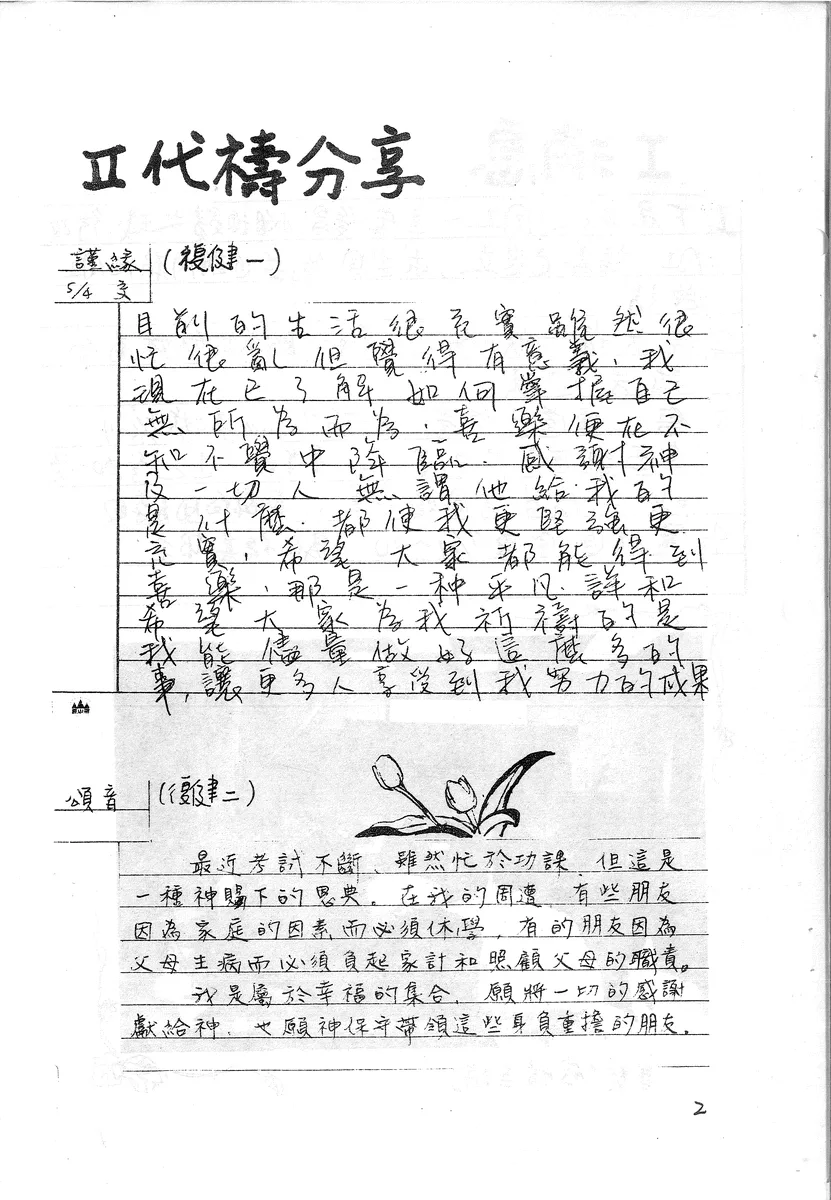 II 代禱分享
謹緣 (復健一)
5/4 交
目前的生活很充實雖然很
忙很亂但覺得有意義,我
現在已了解如何掌握自己
無所為而為,喜樂便在不
知不覺中降臨.感謝神
及一切人無謂他給我的
是什麼.都使我更堅強更
充實,希望大家都能得到
喜樂,那是一种平凡.詳和
希望大家為我祈禱的是
我能儘量做好這麼多的
事,讓更多人享受到我努力的成果
頌音 (復健二)
最近考試不斷、雖然忙於功課,但這是
一種神賜下的恩典。在我的周遭,有些朋友
因為家庭的因素而必須休學,有的朋友因為
父母生病而必須負起家計和照顧父母的職責。
我是屬於幸福的集合,願將一切的感謝
獻給神.也願神保守帶領這些身負重擔的朋友.
2